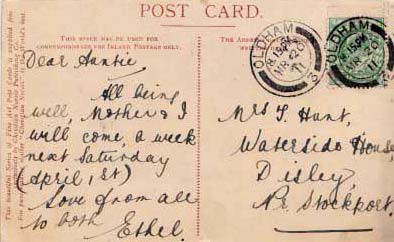 POST CARD.
THIS SPACE MAY BE USED FOR
COMMUNICATION FOR THE INLAND POSTAGE ONLY.
The Address
Dear Auntie
All being
well, Mother & I
will come a week
next Saturday
(April, 1st)
Love from all
to both Ethel.
OLDHAM
MR 20
11
OLDHAM
MR 20
11
Mrs T. Hunt,
Waterside House,
Disley,
Nr. Stockport.